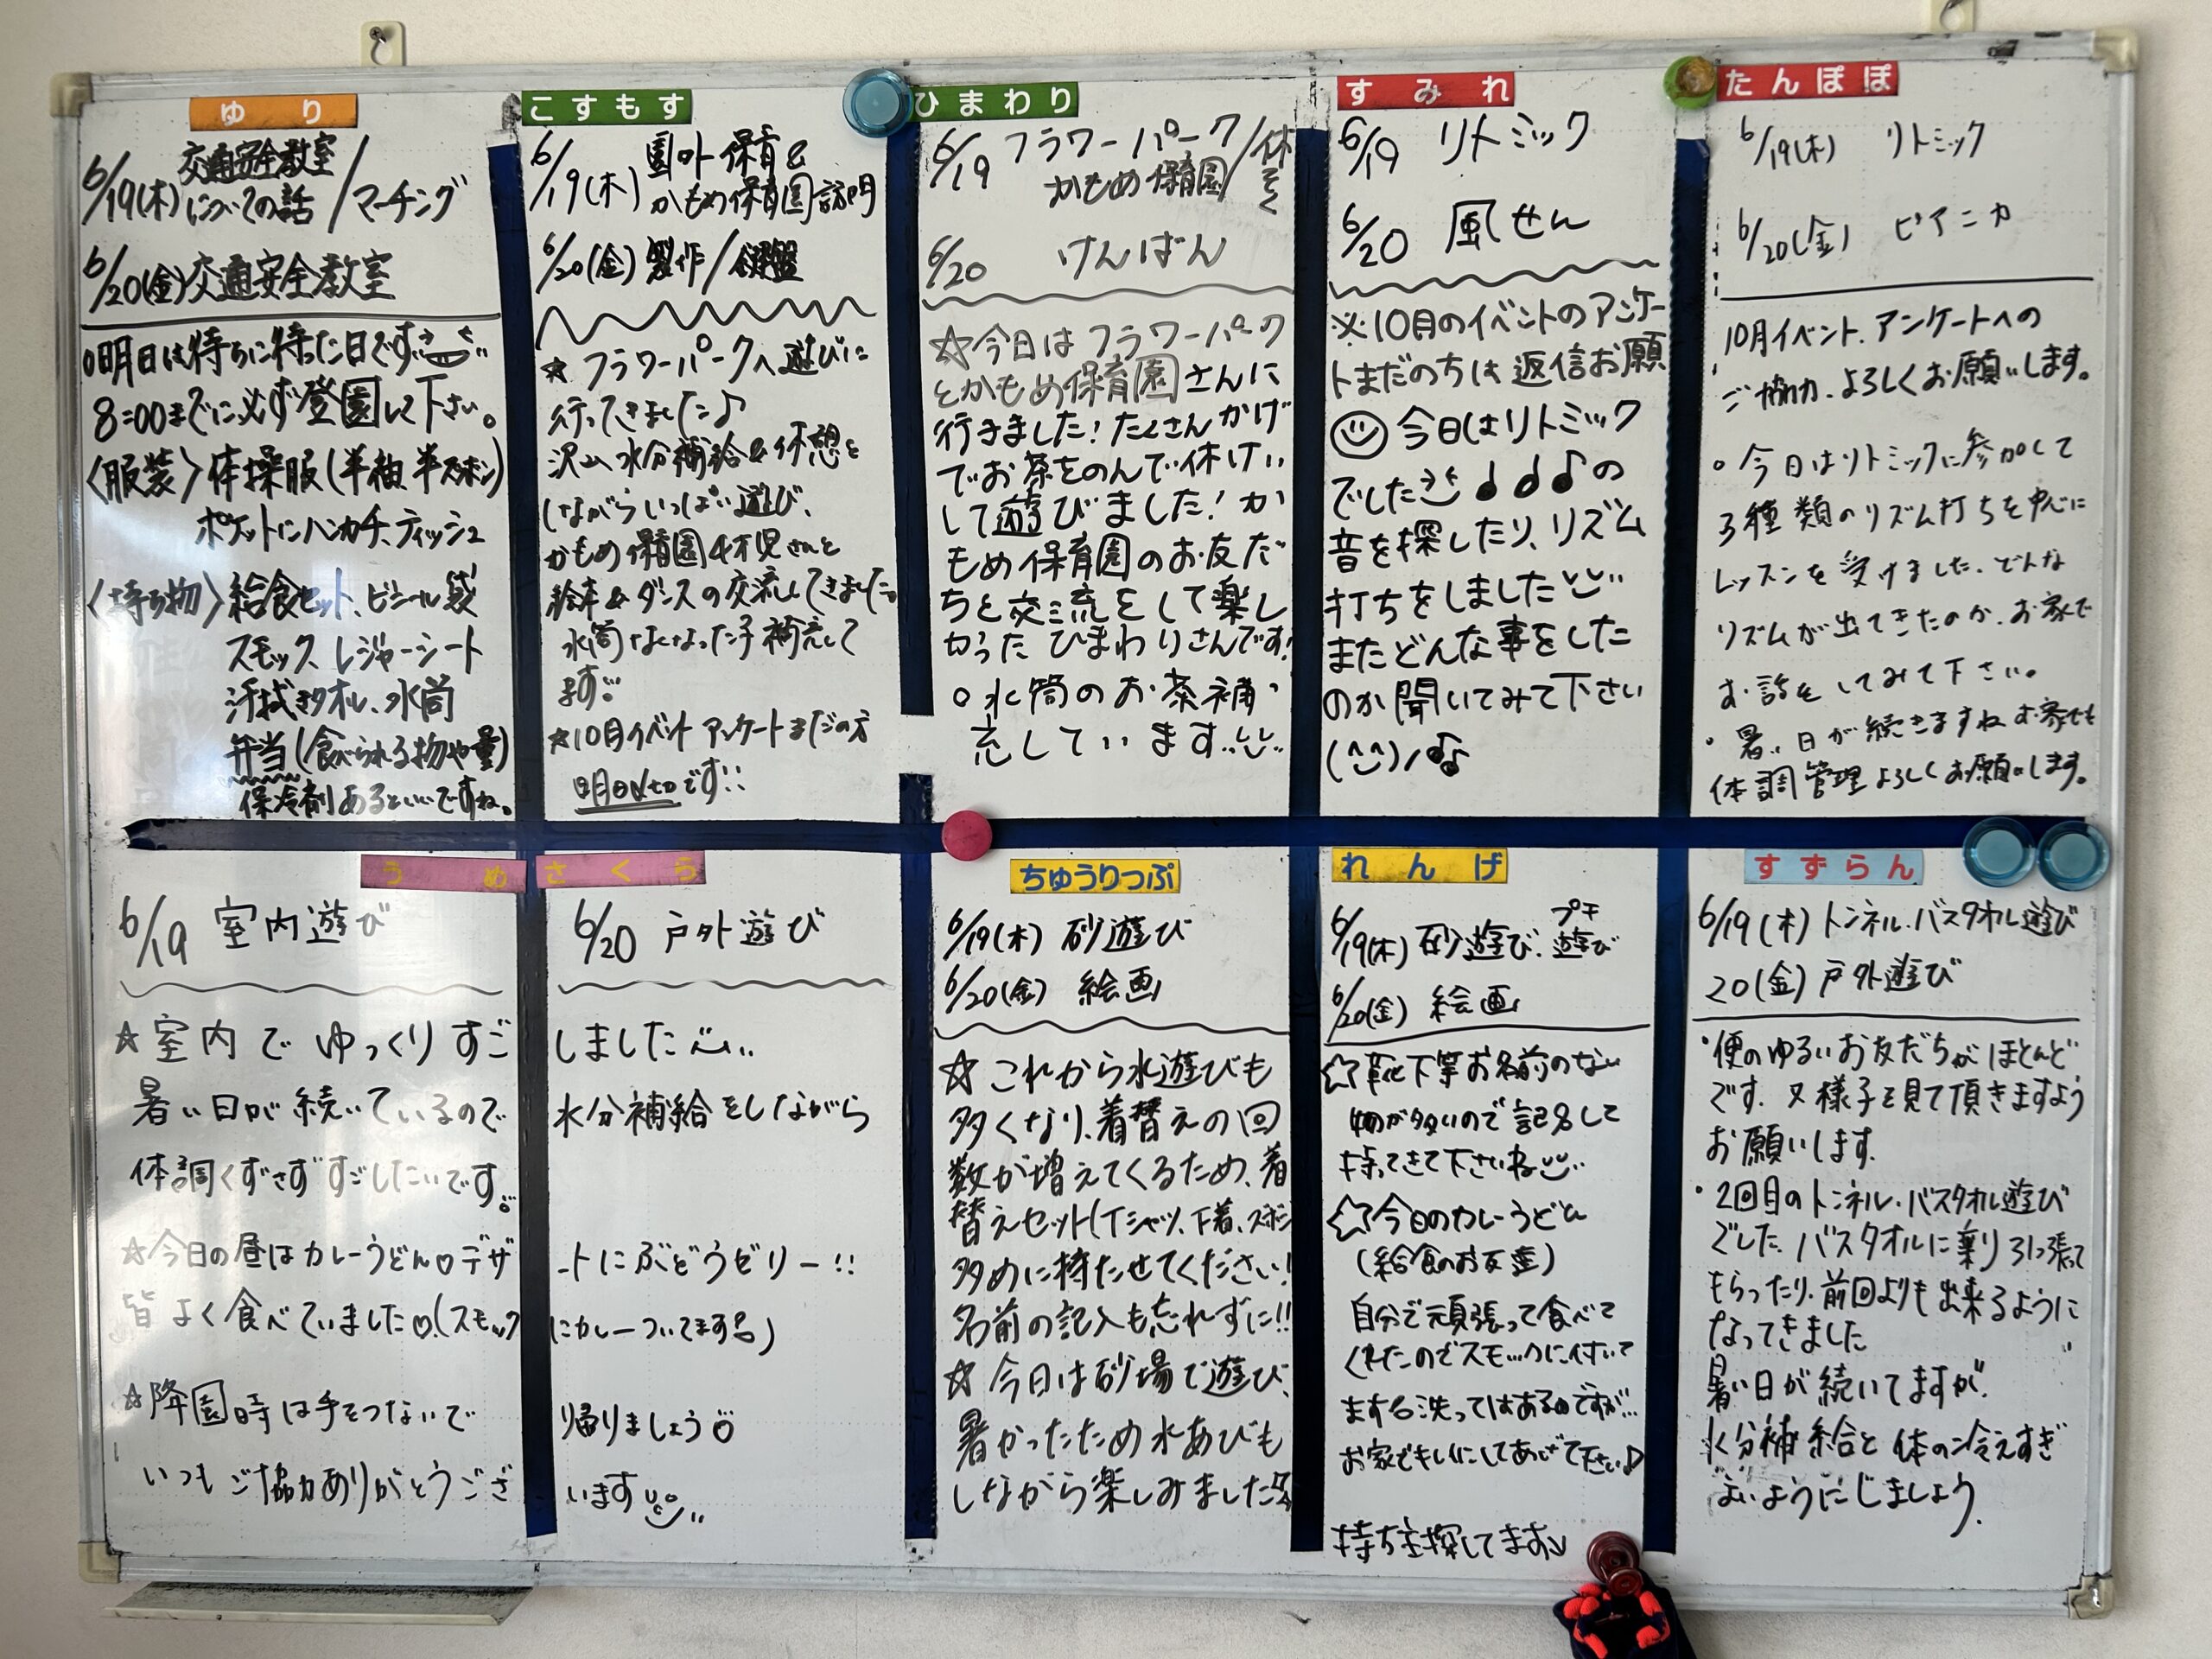 ゆり
6/19(木) 交通安全教室についての話 / マーチング
6/20(金) 交通安全教室
○明日は待ちに待った日です
8:00までに必ず登園して下さい。
〈服装〉体操服(半袖、半ズボン)
ポケットにハンカチ、ティッシュ
〈持ち物〉給食セット、ビニール袋
スモック、レジャーシート
汗拭きタオル、水筒
弁当(食べられる物や量)
保冷剤あるといいですね。
こすもす
6/19(木) 園外保育&
かもめ保育園訪問
6/20(金) 製作/鍵盤
☆フラワーパークへ遊びに
行ってきました♪
沢山水分補給&休憩を
しながらいっぱい遊び、
かもめ保育園4才児さんと
絵本&ダンスの交流してきました。
水筒なくなった子補充して
ます
☆10月イベントアンケートまだの方
明日〆切です!!
ひまわり
6/19 フラワーパーク
かもめ保育園/体そく
6/20 けんばん
☆今日はフラワーパーク
とかもめ保育園さんに
行きました!たくさんかげ
でお茶をのんで休けい
して遊びました!か
もめ保育園のお友だ
ちと交流をして楽し
かったひまわりさんです!
○水筒のお茶補
充しています
すみれ
6/19 リトミック
6/20 風せん
※10月のイベントのアンケー
トまだのちは返信お願
今日はリトミック
でした♩♩♪の
音を探したり、リズム
打ちをしました
またどんな事をした
のか聞いてみて下さい
(^^)/♫
たんぽぽ
6/19(木) リトミック
6/20(金) ピアニカ
10月イベント、アンケートへの
ご協力、よろしくお願いします。
○今日はリトミックに参加して
3種類のリズム打ちを中心に
レッスンを受けました。どんな
リズムが出てきたのか、お家で
お話をしてみて下さい。
・暑い日が続きますねお家でも
体調管理よろしくお願いします。
うめ さくら
6/19 室内遊び
6/20 戸外遊び
☆室内でゆっくりすごしました
暑い日が続いているので水分補給をしながら
体調くずさずすごしたいです。
☆今日の昼はカレーうどん♡デザートにぶどうゼリー!!
皆よく食べていました♡(スモックにカレーついてます)
☆降園時は手をつないで帰りましょう
いつもご協力ありがとうございます
ちゅうりっぷ
6/19(木) 砂遊び
6/20(金) 絵画
☆これから水遊びも
多くなり、着替えの回
数が増えてくるため、着
替えセット(Tシャツ、下着、ズボン
多めに持たせてください!
名前の記入も忘れずに!!
☆今日は砂場で遊び、
暑かったため水あびも
しながら楽しみました
れんげ
6/19(木) 砂遊び、プチ遊び
6/20(金) 絵画
☆靴下等お名前のない
物が多いので記名して
持ってきて下さいね
☆今日のカレーうどん
(給食のお友達)
自分で頑張って食べて
くれたのでスモックに付いて
ます洗ってはあるのですが…
お家でもきれいにしてあげて下さい♪
持ち主探してます
すずらん
6/19(木) トンネル・バスタオル遊び
20(金) 戸外遊び
・便のゆるいお友だちがほとんど
です。又様子を見て頂きますよう
お願いします。
・2回目のトンネル・バスタオル遊び
でした。バスタオルに乗り引っ張って
もらったり、前回よりも出来るように
なってきました
暑い日が続いてますが、
水分補給と体の冷えすぎ
ないようにしましょう。